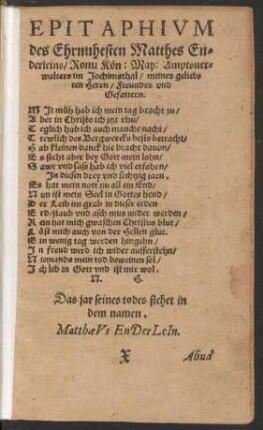 EPITAPHIVM
des Ehrnuhesten Matthes En-
derleins/ Romi Kön: May: Amptsuer-
walters im Jochimsthal/ meines gelieb-
ten Herrn/ Freundes vnd
Gefattern.
Mit müh hab ich mein tag bracht zu/
Aber in Christo ich itzt rhu/
Teglich hab ich auch manche nacht/
Trewlich des Bergwercks bests betracht/
Hab kleinen danck hie bracht dauon/
Es stehet aber bey Gott mein lohn/
Sawr vnd süss hab ich viel erfahren/
In diesen drey vnd sechtzig jarn.
Es hat mein not nu all ein End/
Nun ist mein Seel in Gottes hend/
Der Leib im grab in dieser erden
Erd/ staub vnd asch mus wider werden/
Rein hat mich gwaschen Christus blut/
Löst mich auch von der Hellen glut.
Ein wenig tag werden hingehn/
In freud werd ich wider aufferstehn/
Niemands mein tod beweinen sol/
Ich leb in Gott vnd ist mir wol.
N. H.
Das jar seines todes stehet in
dem namen.
MatthæVs EnDerLeIn.
X
Aliud